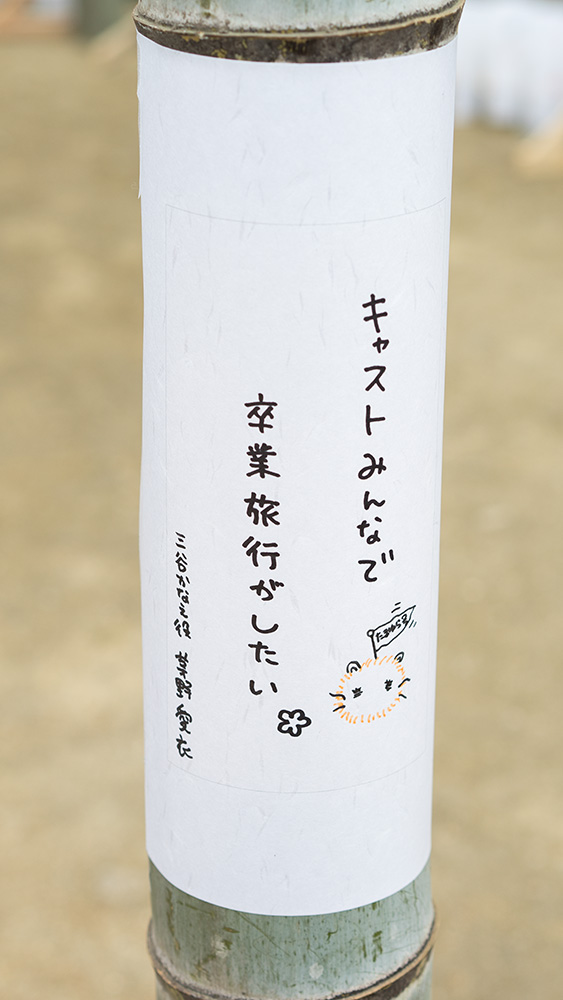 キャストみんなで
卒業旅行がしたい
三谷かなえ役 茅野愛衣
たまゆら